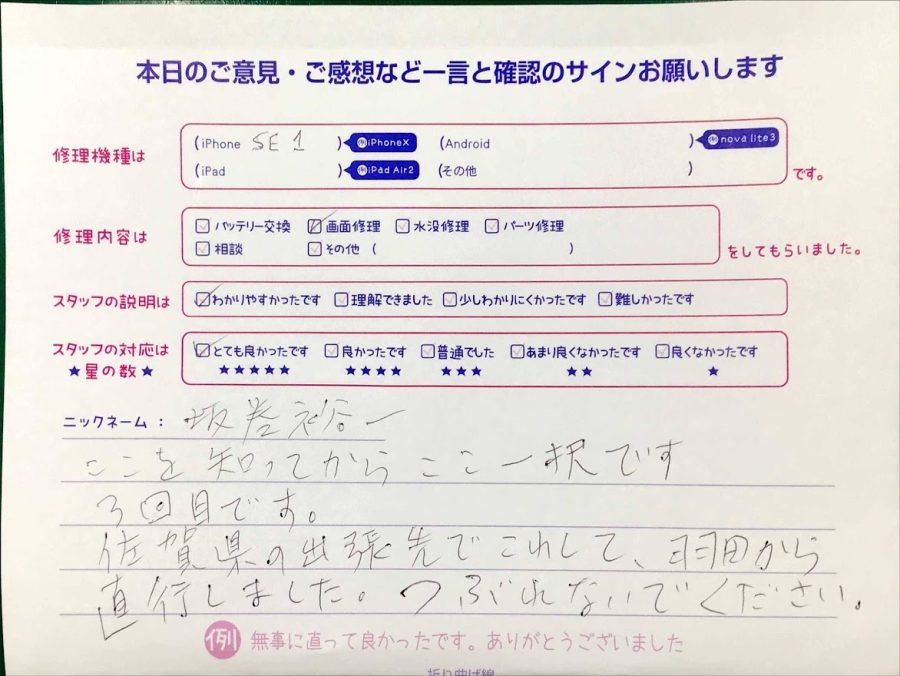 本日のご意見・ご感想など一言と確認のサインお願いします
修理機種は
(iPhone SE 1 ) 例iPhoneX (Android ) 例nova lite3
(iPad ) 例iPad Air2 (その他 ) です。
修理内容は
バッテリー交換 画面修理 水没修理 パーツ修理
相談 その他 ( ) をしてもらいました。
スタッフの説明は
わかりやすかったです 理解できました 少しわかりにくかったです 難しかったです
スタッフの対応は
★星の数★
とても良かったです 良かったです 普通でした あまり良くなかったです 良くなかったです
★★★★★ ★★★★ ★★★ ★★ ★
ニックネーム: 坂巻裕一
ここを知ってからここ一択です
3回目です。
佐賀県の出張先でこわして、羽田から
直行しました。つぶれないでください。
例 無事に直って良かったです。ありがとうございました
折り曲げ線